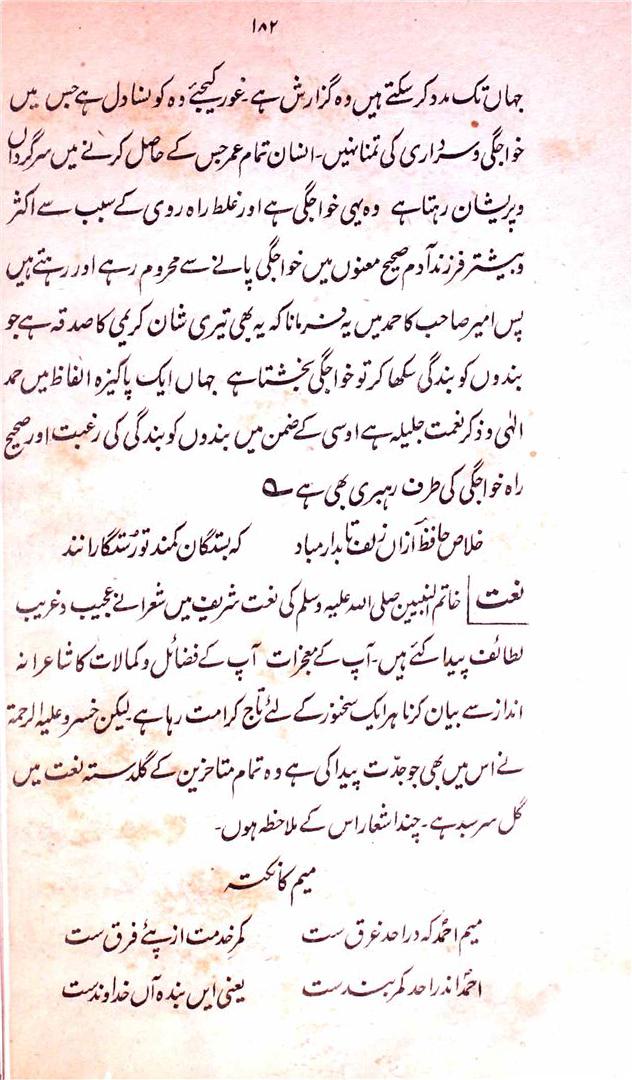 ۱۸۲
جہاں تک مدد کر سکتے ہیں وہ گزارش ہے۔ غور کیجئے وہ کونسا دل ہے جس میں
خواجگی و سرداری کی تمنا نہیں۔ انسان تمام عمر جس کے حاصل کرنے میں سرگرداں
و پریشان رہتا ہے وہ یہی خواجگی ہے اور غلط راہ روی کے سبب سے اکثر
و بیشتر فرزند آدم صحیح معنوں میں خواجگی پانے سے محروم رہے اور رہتے ہیں
پس امیر صاحب کا حمد میں یہ فرمانا کہ یہ بھی تیری شان کریمی کا صدقہ ہے جو
بندوں کو بندگی سکھا کر تو خواجگی بخشتا ہے جہاں ایک پاکیزہ الفاظ میں حمد
الٰہی و ذکر نعمت جلیلہ ہے اوسی کے ضمن میں بندوں کو بندگی کی رغبت اور صحیح
راہ خواجگی کی طرف رہبری بھی ہے ؎
خلاص حافظ ازاں زلف تابدار مباد کہ بستگان کمند تو رستگارانند
نعت خاتم النبیین صلی اللہ علیہ وسلم کی نعت شریف میں شعرا نے عجیب و غریب
لطائف پیدا کئے ہیں۔ آپ کے معجزات آپ کے فضائل و کمالات کا شاعرانہ
انداز سے بیان کرنا ہر ایک سخنور کے لئے تاج کرامت رہا ہے لیکن خسرو علیہ الرحمۃ
نے اس میں بھی جو جدّت پیدا کی ہے وہ تمام متاخرین کے گلدستہ نعت میں
گل سرسبد ہے۔ چند اشعار اس کے ملاحظہ ہوں۔
میم کا نکتہ
میم احمدؐ کہ در احد غرق ست کمر خدمت از پئے فرق ست
احمدؐ اندر احد کمر بندست یعنی ایں بندہ آں خداوندست